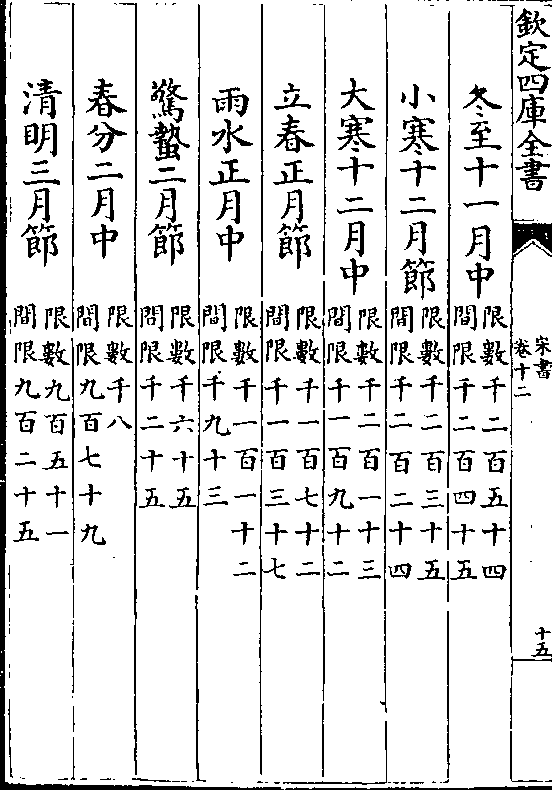 欽定四庫全書
宋書
卷十二
十五
冬至十一月中
限數千二百五十四
間限千二百四十五
小寒十二月節
限數千二百三十五
間限千二百二十四
大寒十二月中
限數千二百一十三
間限千一百九十二
立春正月節
限數千一百七十二
間限千一百三十七
雨水正月中
限數千一百一十二
間限千九十三
驚蟄二月節
限數千六十五
間限千二十五
春分二月中
限數千八
間限九百七十九
清明三月節
限數九百五十一
間限九百二十五